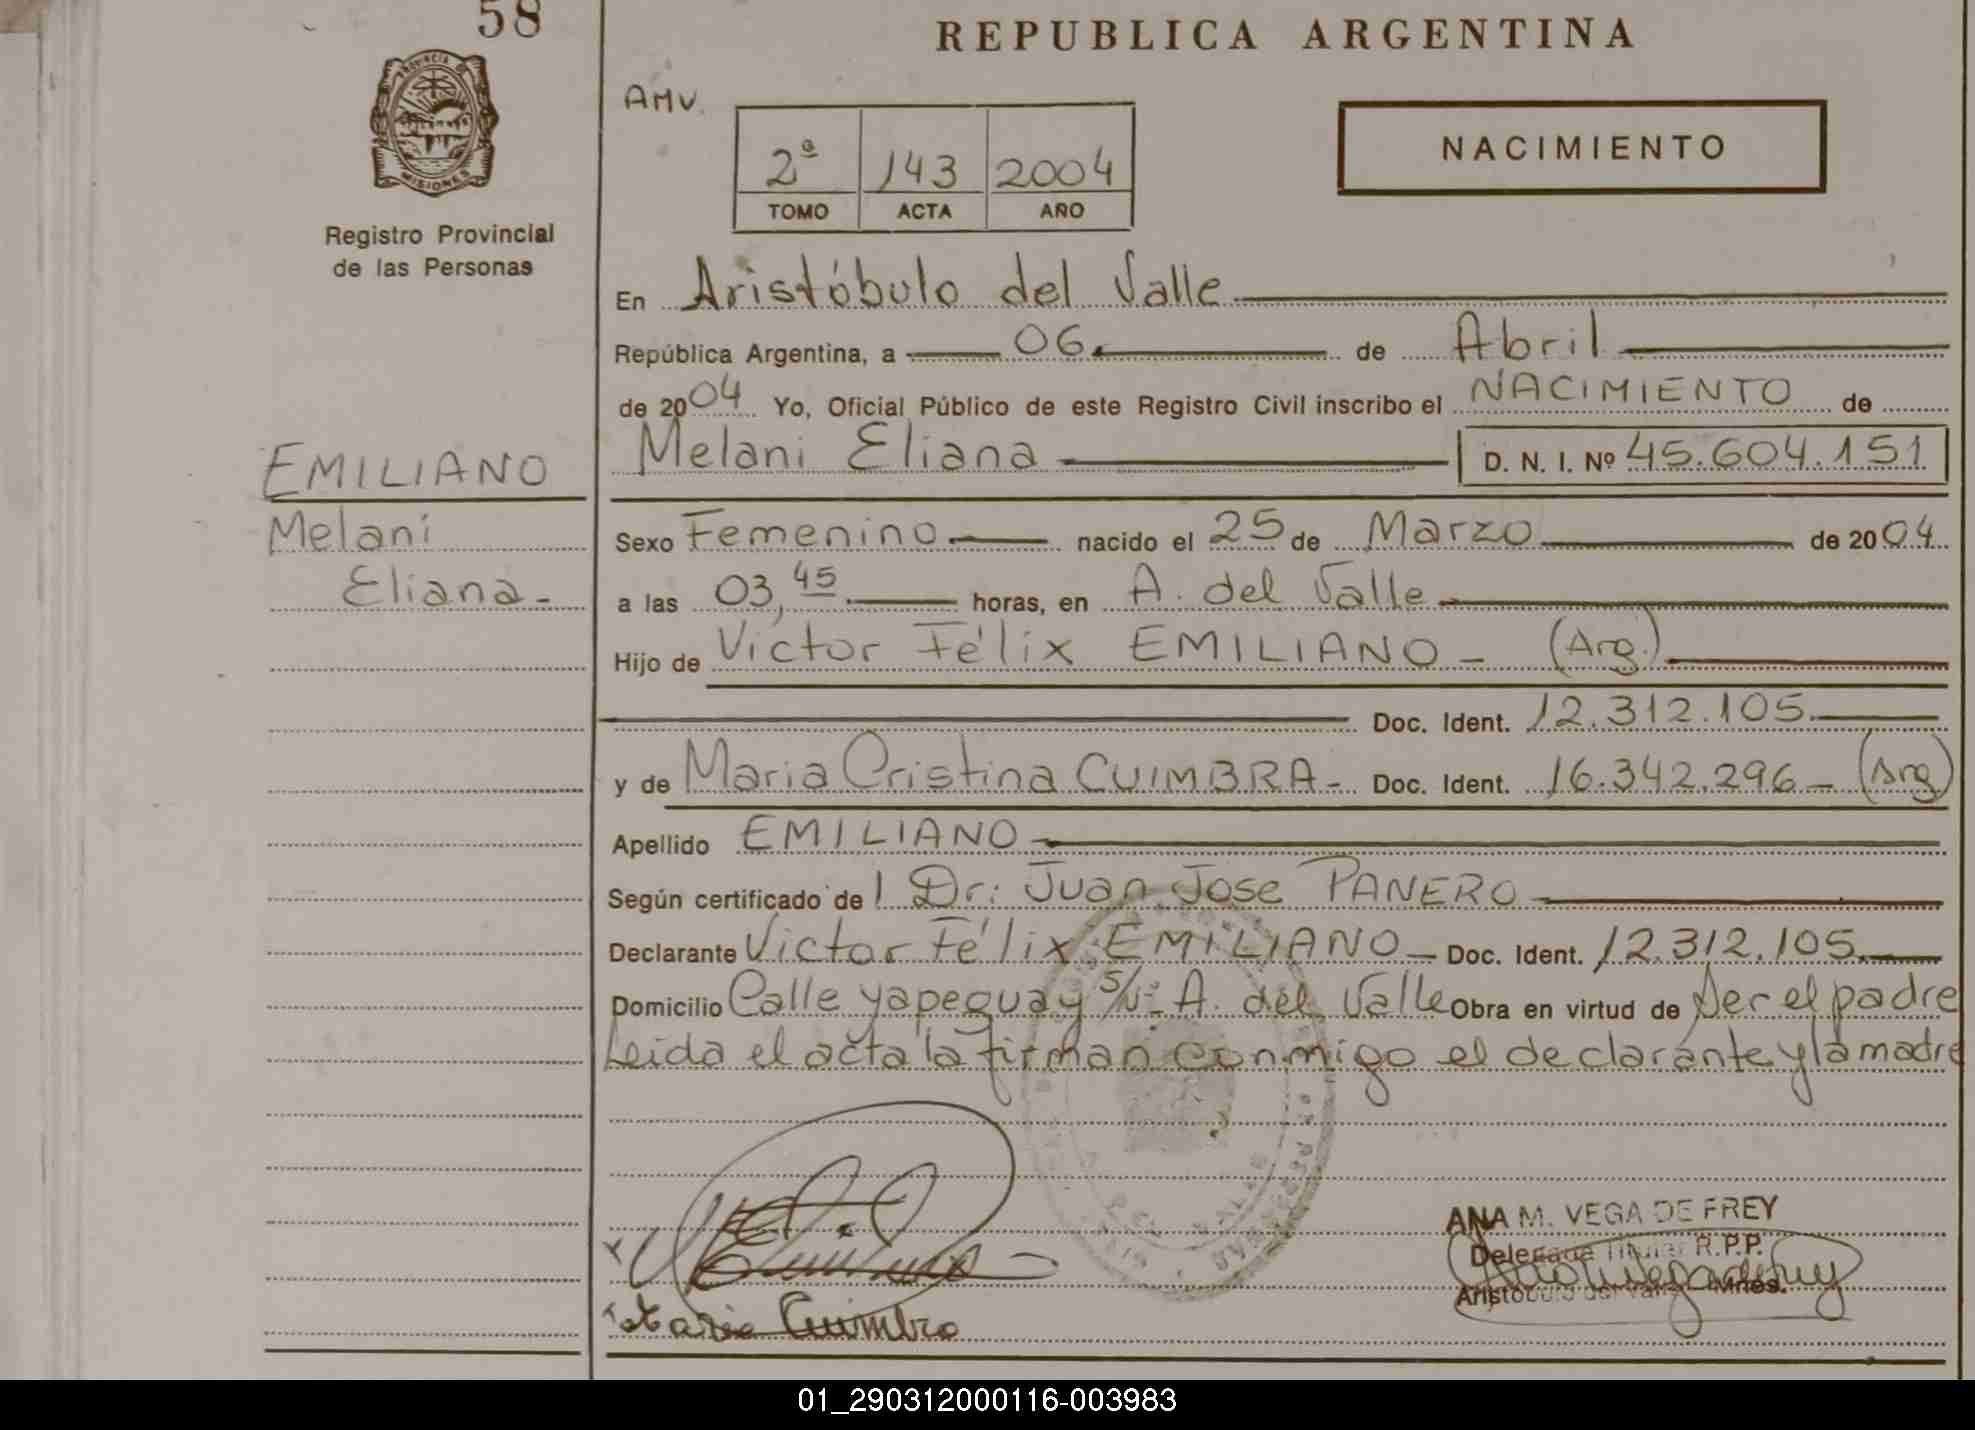 58
REPUBLICA ARGENTINA
PROVINCIA DE
MISIONES
Registro Provincial
de las Personas
AMV.
NACIMIENTO
2ª 143 2004
TOMO ACTA AÑO
En Aristóbulo del Valle
República Argentina, a 06 de Abril
de 2004 Yo, Oficial Público de este Registro Civil inscribo el NACIMIENTO de
EMILIANO
Melani Eliana D. N. I. Nº 45.604.151
Melani
Sexo Femenino nacido el 25 de Marzo de 2004
Eliana-
a las 03,45 horas, en A. del Valle
Hijo de Victor Félix EMILIANO - (Arg.)
Doc. Ident. 12.312.105
y de Maria Cristina CUIMBRA- Doc. Ident. 16.342.296 - (Arg)
Apellido EMILIANO
Según certificado de l Dr: Juan Jose PANERO
Declarante Victor Félix EMILIANO - Doc. Ident. 12.312.105.
Domicilio Calle yapeguay s/nº A. del Valle Obra en virtud de Ser el padre
Leida el acta la firman conmigo el declarante y la madre
ANA M. VEGA DE FREY
Delegada Titular R.P.P.
Aristóbulo del Valle Mnes.
Maria Cuimbra
01_290312000116-003983